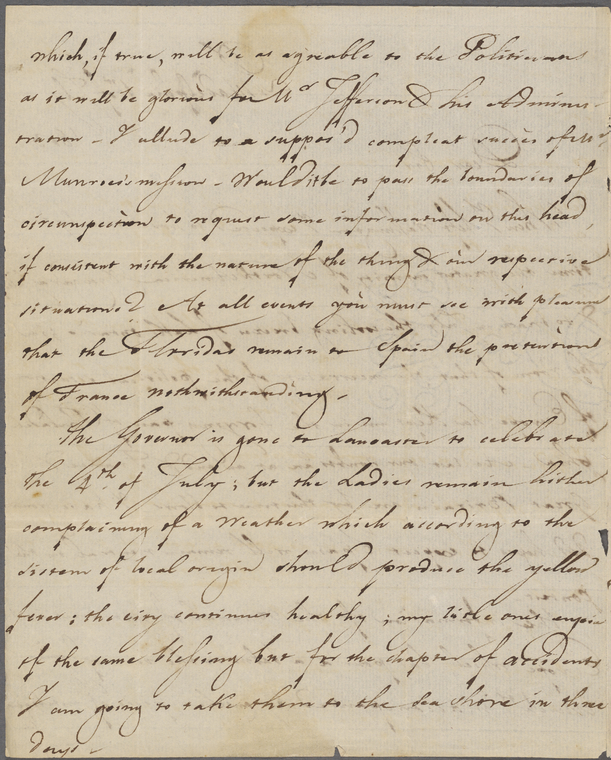 which, if true, will be as agreable to the Politicians
as it will be glorious for Mr Jefferson & his Adminis-
tration - I allude to a suppos'd compleat succes of Mr
Munroe's mission - Would it be to pass the boundaries of
circunspection to request some information on this head,
if consistent with the nature of the thing & our respective
situations? At all events you must see with pleasure
that the Floridas remain to Spain the pretention
of France nothwithstanding -
The Governor is gone to Lancaster to celebrate
the 4th of July; but the Ladies remain hither
complaining of a Weather which according to the
sistem of local origin should produce the yellow
fever; the city continues healthy; my little ones enjoy
of the same blessing but for the chapter of accidents
I am going to take them to the sea shore in three
days -